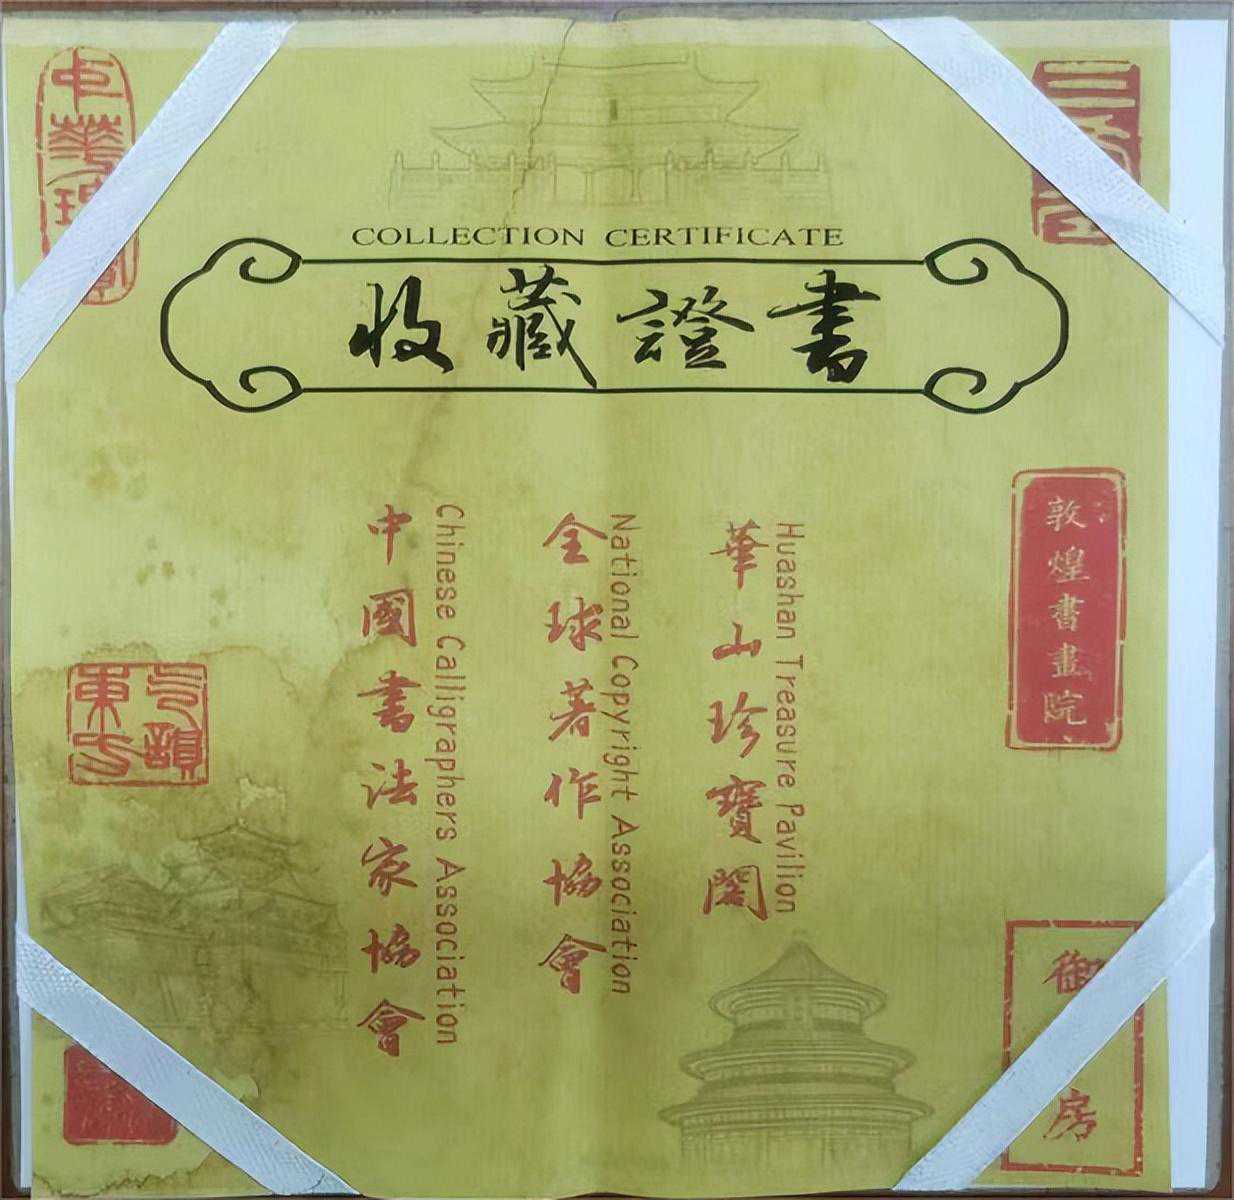 COLLECTION CERTIFICATE
收藏證書
華山珍寶閣
Huashan Treasure Pavilion
全球著作協會
National Copyright Association
中國書法家協會
Chinese Calligraphers Association
敦煌書畫院
御
房
中華
東方
韻